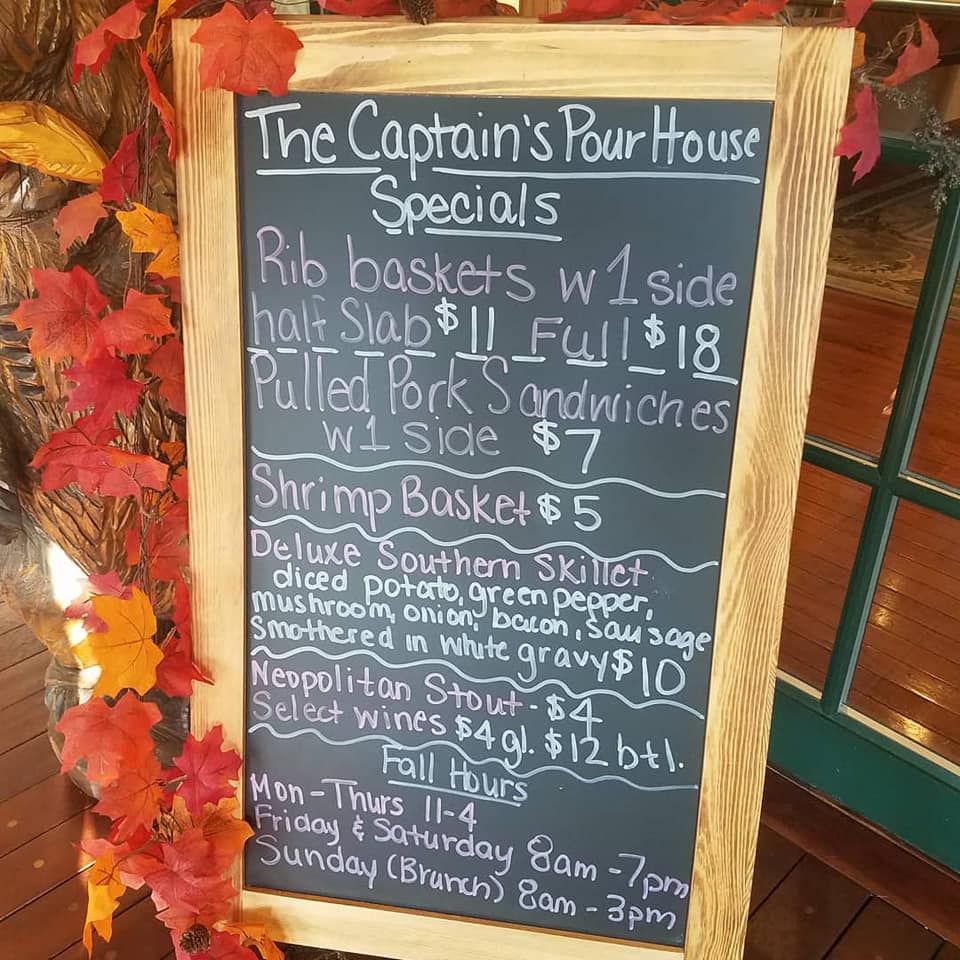 The Captain's Pour House
Specials
Rib baskets w 1 side
half Slab $11 Full $18
Pulled Pork Sandwiches
w 1 side $7
Shrimp Basket $5
Deluxe Southern Skillet
diced potato, green pepper,
mushroom, onion, bacon, sausage
smothered in white gravy $10
Neopolitan Stout - $4
Select wines $4 gl. $12 btl.
Fall Hours
Mon - Thurs 11-4
Friday & Saturday 8am - 7pm
Sunday (Brunch) 8am - 3pm